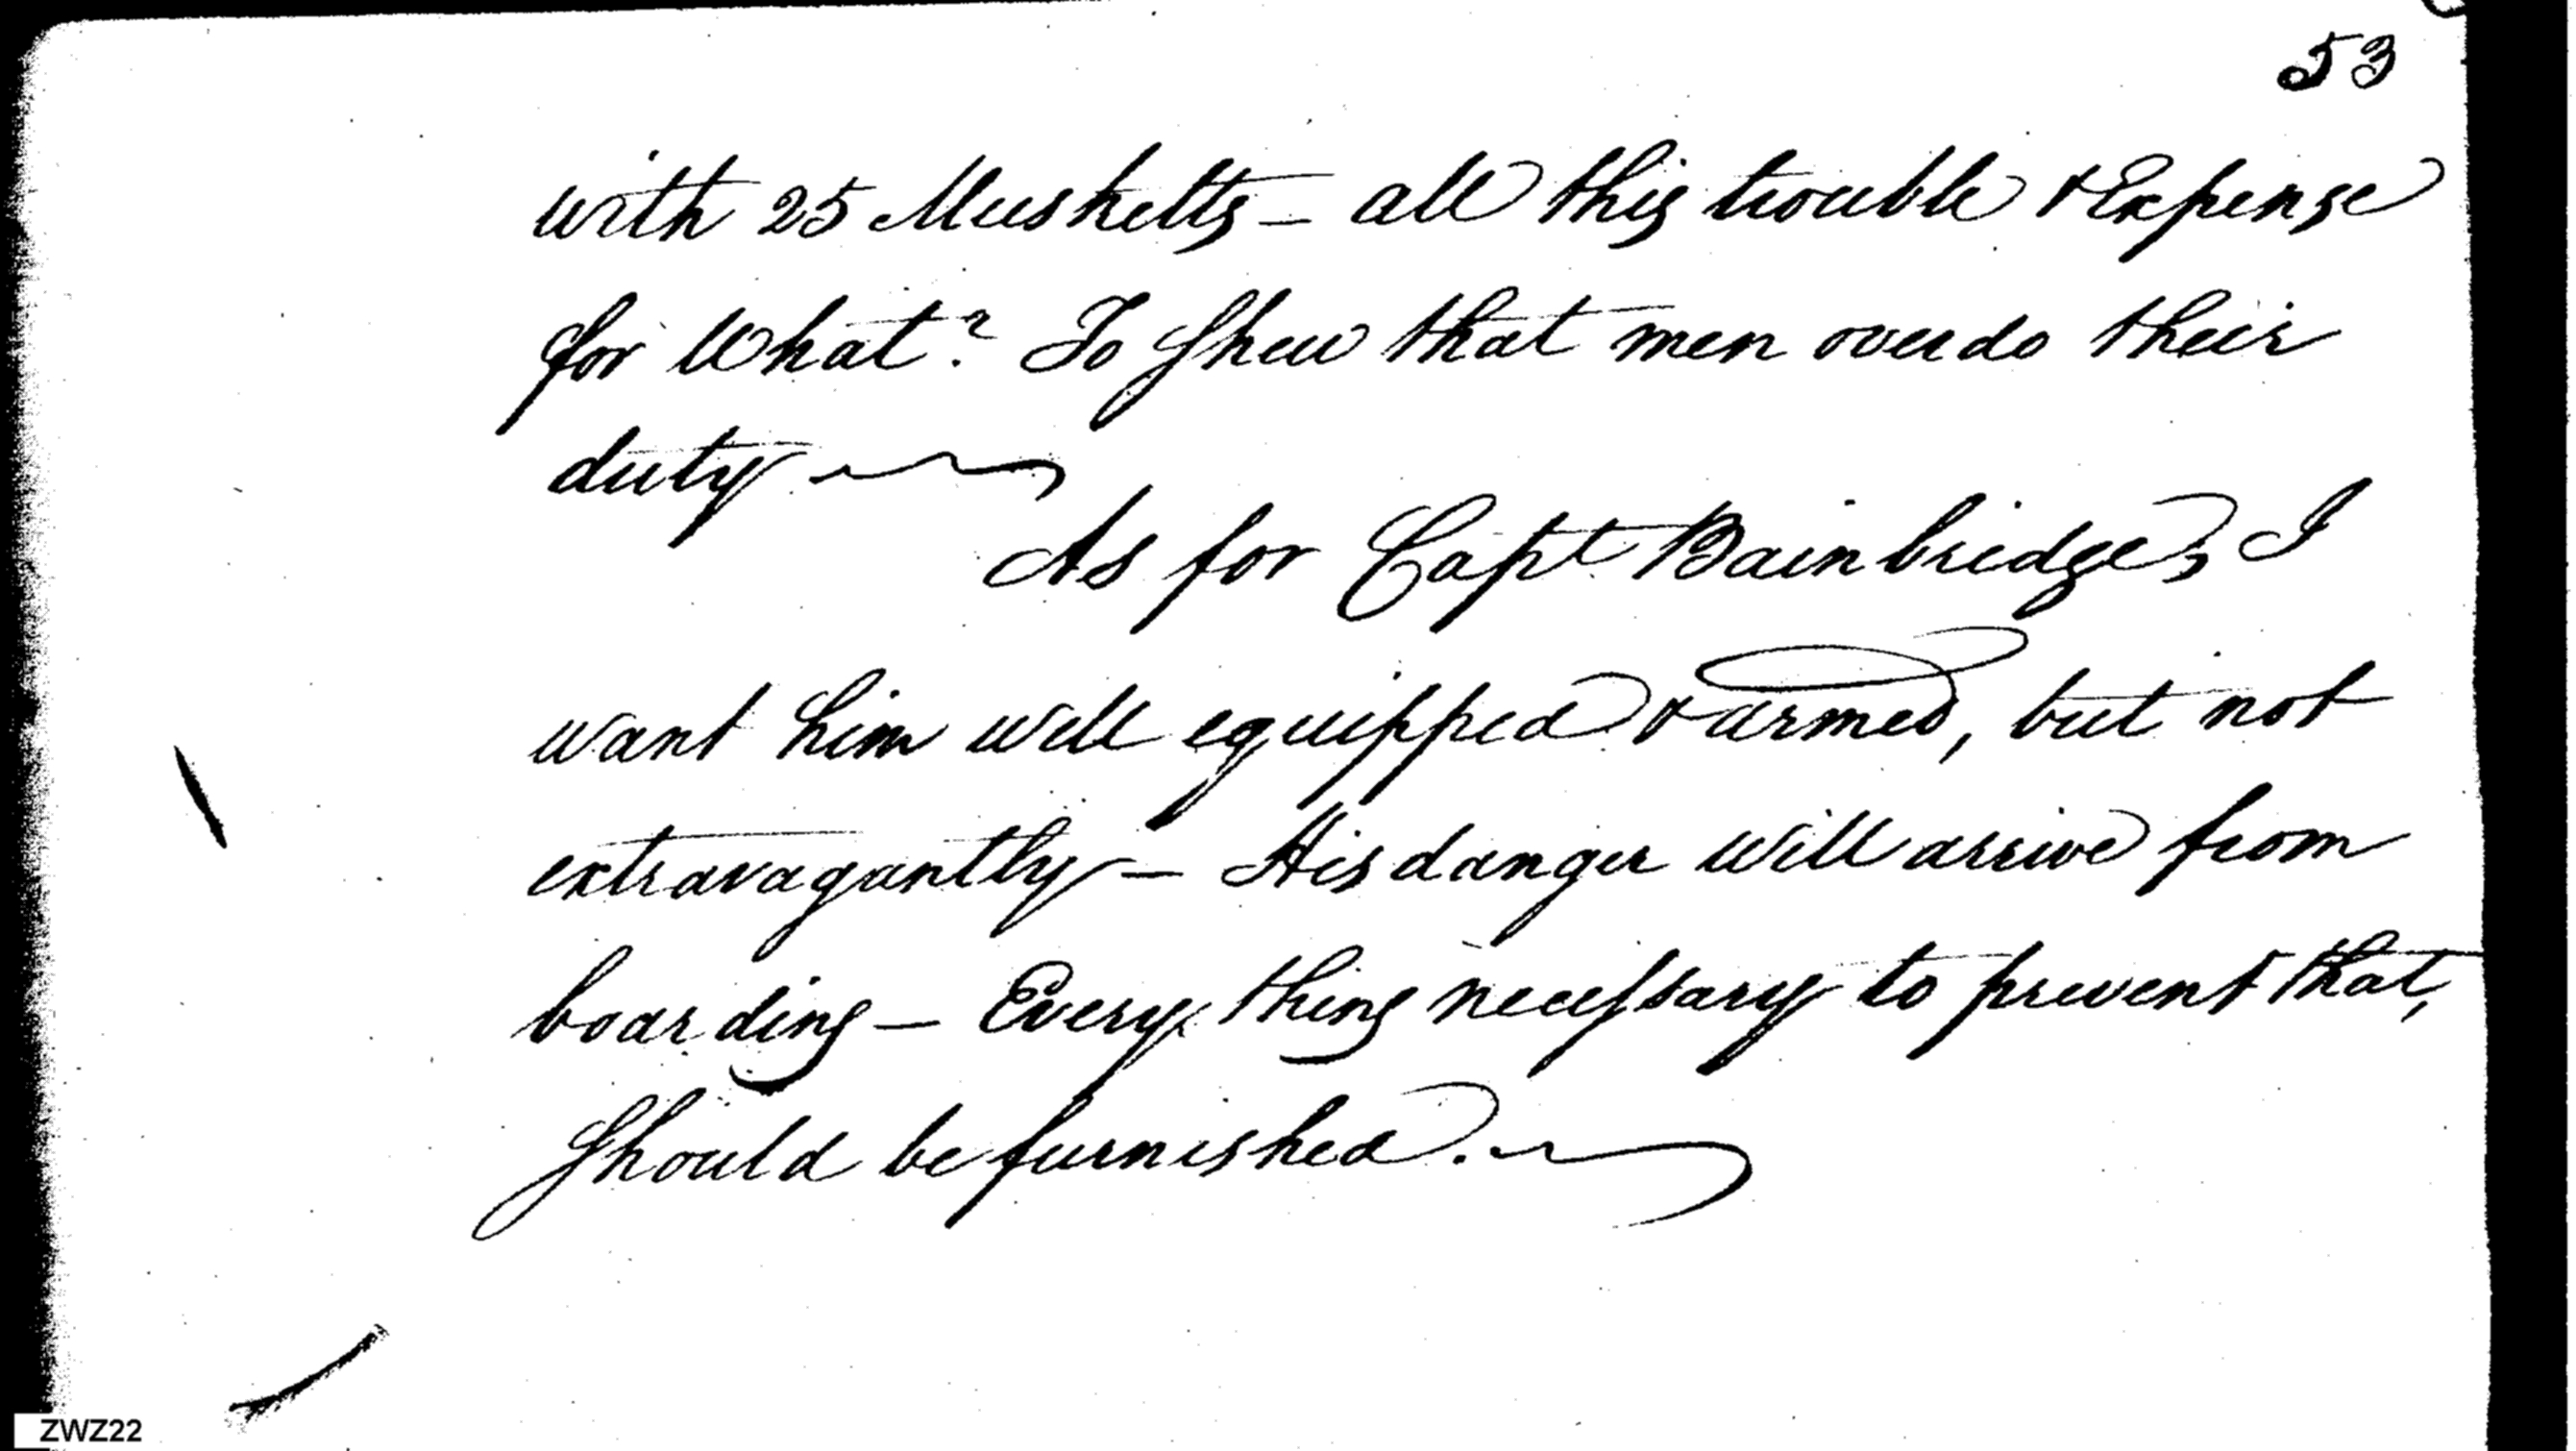 53
with 25 Musketts – all this trouble & Expense
for What? To Shew that men overdo their
duty
As for Capt Bainbridge, I
want him well equipped & armed, but not
extravagantly – His danger will arrive from
boarding – Every thing necessary to prevent that,
Should be furnished.
ZWZ22